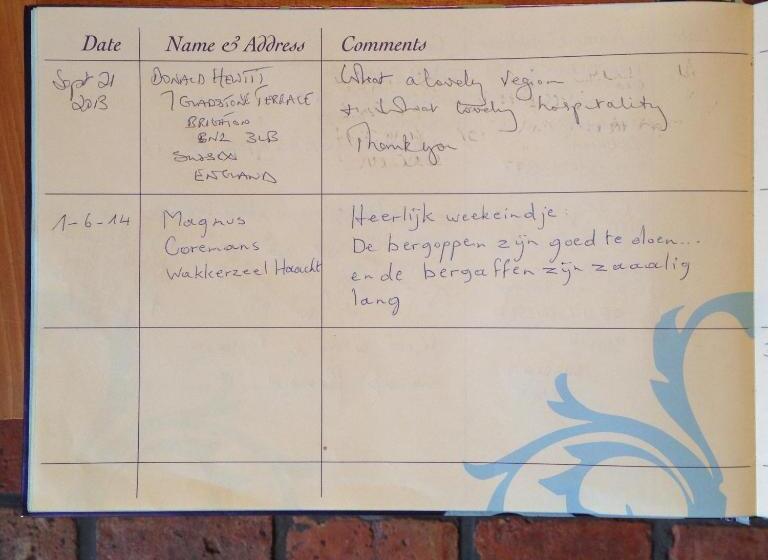 Date Name & Address Comments
Sept 21
2013
DONALD HEWITT
7 GLADSTONE TERRACE
BRIGHTON
BN2 3LB
SUSSEX
ENGLAND
What a lovely region
+ What lovely hospitality
Thankyou
1-6-14
Magnus
Coremans
Wakkerzeel Haacht
Heerlijk weekeindje.
De bergoppen zijn goed te doen...
en de bergaffen zijn zaaalig
lang